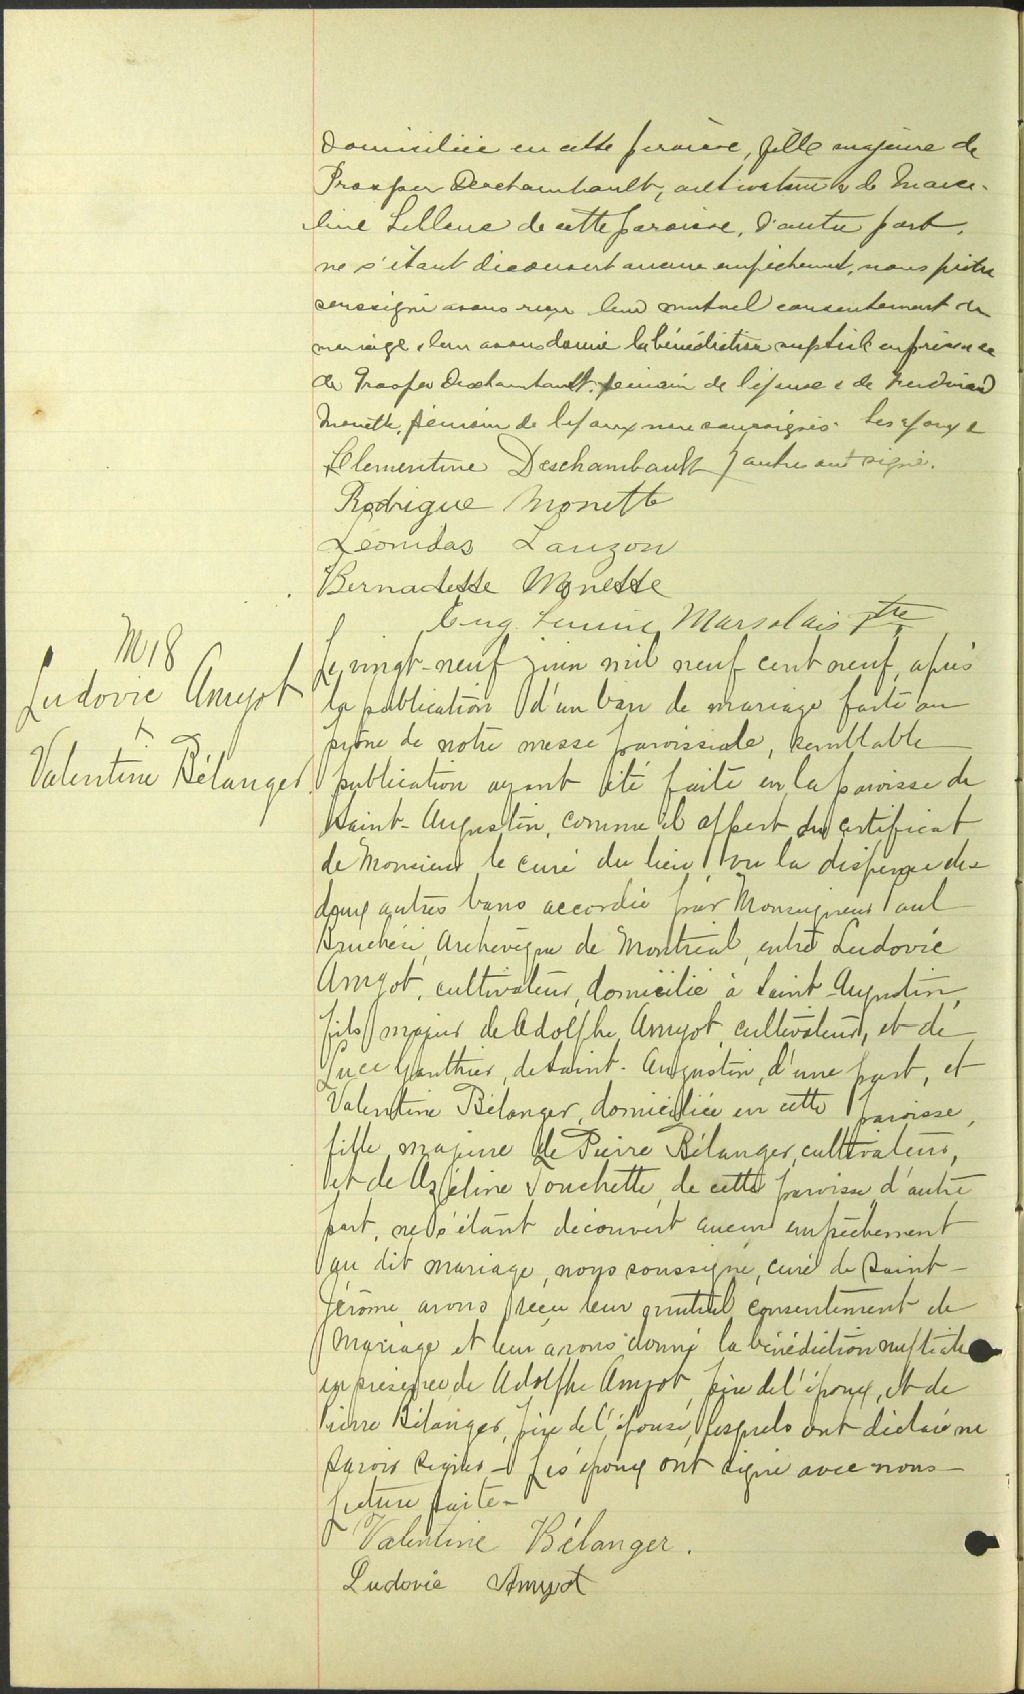 domiciliée en cette paroisse, fille majeure de
Prosper Deschambault, cultivateur & de Marce-
line Leblanc de cette paroisse, d'autre part,
ne s'étant découvert aucun empêchement, nous prêtre
soussigné avons reçu leur mutuel consentement de
mariage & leur avons donné la bénédiction nuptiale en présence
de Prosper Deschambault, témoin de l'épouse & de
Monette, témoin de l'époux non soussignés. Les époux &
Clementine Deschambault autres ont signé.
Rodrigue Monette
Léonidas Lauzon
Bernadette Monette
Eug. Marsolais Ptre
M 18
Ludovic Amyot
&
Valentine Bélanger
Le vingt-neuf juin mil neuf cent neuf, après
la publication d'un ban de mariage faite au
prône de notre messe paroissiale, semblable
publication ayant été faite en la paroisse de
Saint-Augustin, comme il appert du certificat
de Monsieur le curé du lieu, vu la dispense des
deux autres bans accordée par Monseigneur Paul
Bruchési, Archevêque de Montréal, entre Ludovic
Amyot, cultivateur, domicilié à Saint-Augustin,
fils majeur de Adolphe Amyot, cultivateur, et de
Luce Gauthier, de Saint-Augustin, d'une part, et
Valentine Bélanger, domiciliée en cette paroisse,
fille majeure de Pierre Bélanger, cultivateur,
et de Azéline Touchette, de cette paroisse, d'autre
part, ne s'étant découvert aucun empêchement
au dit mariage, nous soussigné, curé de Saint-
Jérôme avons reçu leur mutuel consentement de
mariage et leur avons donné la bénédiction nuptiale
en présence de Adolphe Amyot, père de l'époux, et de
Pierre Bélanger, père de l'épouse, lesquels ont déclaré ne
savoir signer - Les époux ont signé avec nous -
Lecture faite -
Valentine Bélanger.
Ludovic Amyot